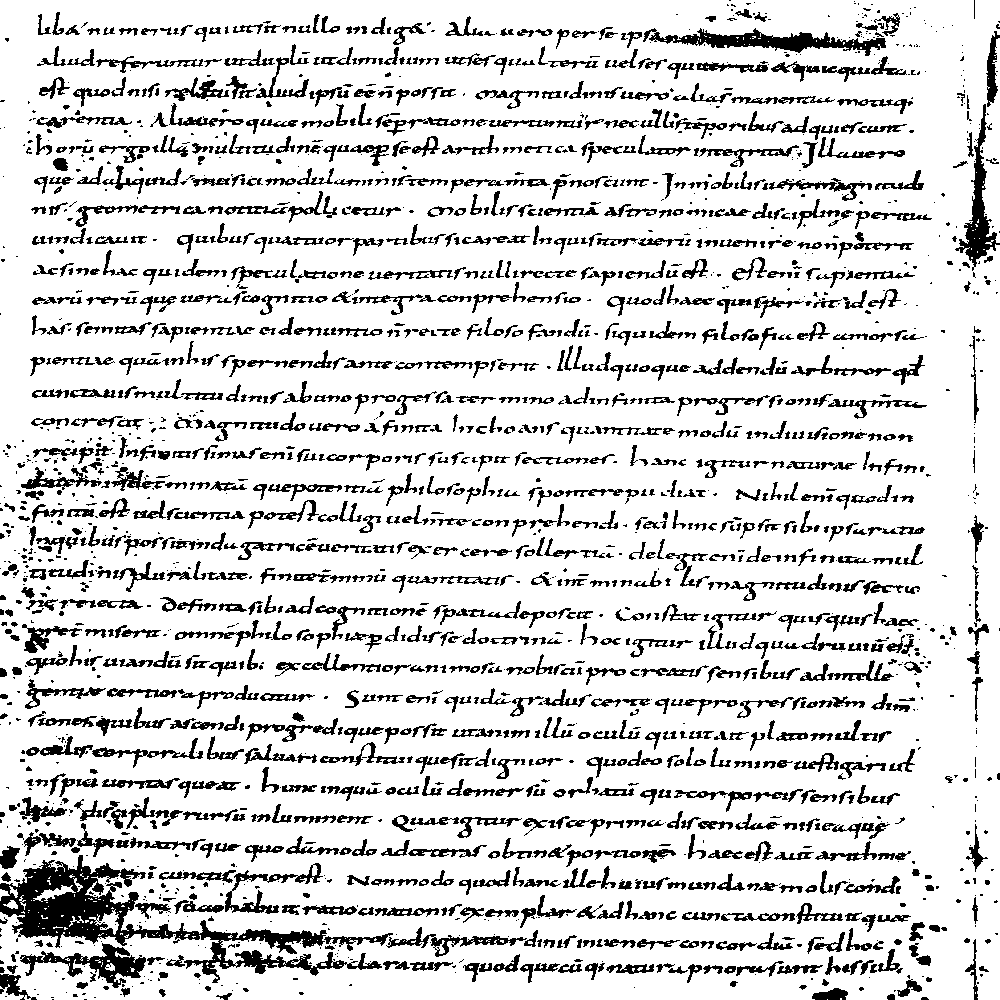 lib& numerus qui ut sit nullo indig&. Alia vero per se ipsa
aliud referuntur ut duplū ut dimidium ut sesqualterū vel sesquitertiū & quicquid
est quod nisi relatū sit ad aliud ipsū eē n̄ possit. Magnitudinis vero alias manentia motuq;
carentia. Alia vero quae mobili sēp ratione vertuntur nec ullis tēporibus adquiescunt.
horū ergo illā multitudinē quae p se est arithmetica speculator integritas. Illa vero
quę ad aliquid musici modulaminis temperam̄ta p̄noscunt. Inmobilis vero magnitudi
nis geometrica notitiā pollicetur. Mobilis scientiā astronomicae disciplinę peritia
vindicavit. Quibus quattuor partibus si careat inquisitor verū invenire non poterit
ac sine hac quidem speculatione veritatis nulli recte sapiendū est. Est enī sapientia
earū rerū quę vera s̄ cognitio & integra conprehensio. Quod haec qui spernit id est
has semitas sapientiae ei denuntio n̄ recte filosofandū. siquidem filosofia est amor sa
pientiae quā in his spernendis ante contempserit. Illud quoque addendū arbitror qd
cuncta vis multitudinis ab uno progessa termino ad infinita progressionis augm̄ta
concrescit. Magnitudo vero a finita inchoans quantitate modū in divisione non
recipit. Infinitissimas enī sui corporis suscipit sectiones. hanc igitur naturae infini
tatem indetēminatā que potentiā philosophia sponte repudiat. Nihil enī quod in
finitū est vel scientia potest colligi vel m̄te conprehendi. sed hinc sūpsit sibi ipsa ratio
In quibus possit indagatricē veritatis exercere sollertiā. delegit enī de infinita mul
titudinis pluralitate. finite t̄minū quantitatis. & int̄minabilis magnitudinis sectio
nę reiecta. Definita sibi ad cognitionē spatia deposcit. Constat igitur quisquis haec
pret̄miserit. omnē philosophiae p didisse doctrinā. hoc igitur illud quadruviū est
quo his viandū sit quib; excellentior animos a nobiscū procreatis sensibus ad intelle
gentiae certiora producitur. Sunt enī quidā gradus certę que progressionēm dim̄
siones quibus ascendi progredique possit ut animi illū oculū qui ut ait plato multis
oculis corporalibus salvari constitui que sit dignior. Quod eo solo lumine vestigari ut
inspici veritas queat. hunc inquā oculū demersū orbatū que corporeis sensibus
hae disciplinę rursū inluminent. Quae igitur ex isce prima discenda ē nisi ea quę
principiū matris que quodāmodo ad ceteras obtin& portionē haec est autē arithme
enī cunctis prior est. Non modo quod hanc ille huius mundanae molis condi
suae habuit ratiocinationis exemplar & ad hanc cuncta constituit quae
numeros adsignati ordinis invenere concordiā. sed hoc
quoque declaratur. quod quecūq; natura priora sunt his sub